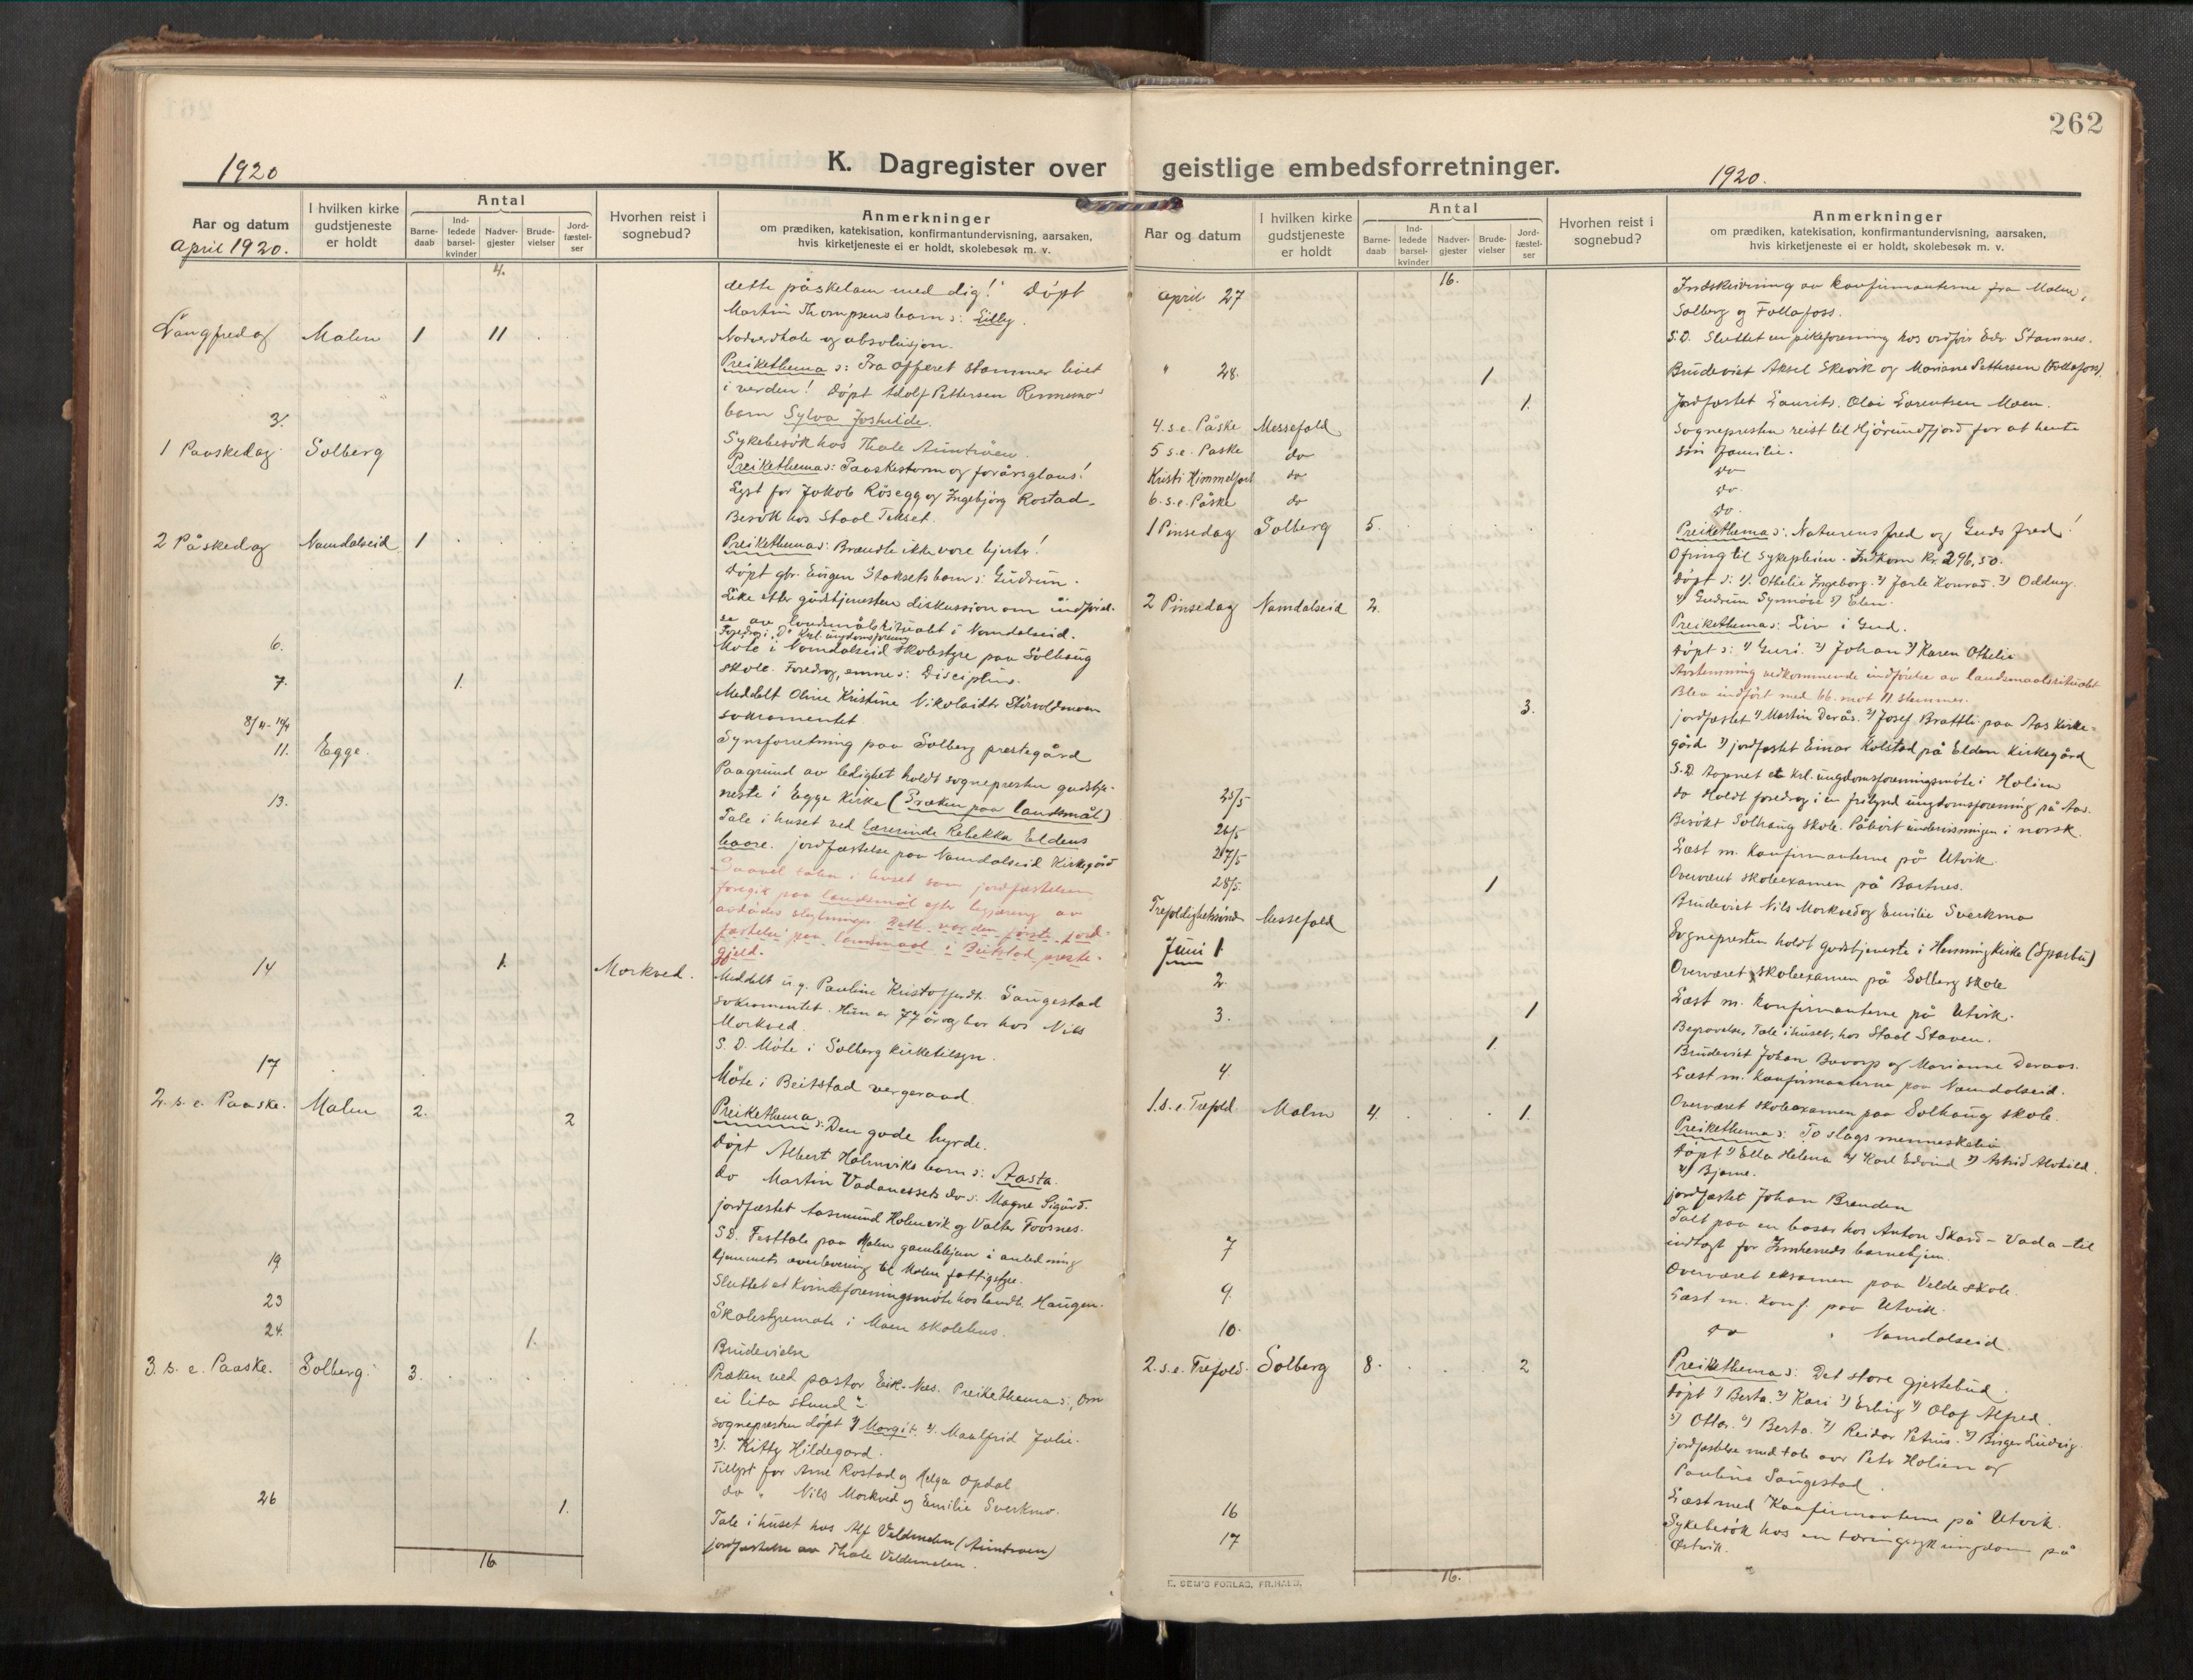 262
1920
K. Dagregister over
Aar og datum
April 1920.
I hvilken kirke gudstjeneste er holdt
Antal
Barnedaab
Indledede barselkvinder
Nadvergjester
Brudevielser
Jordfæstelser
Hvorhen reist i sognebud?
Anmerkninger
om prædiken, katekisation, konfirmantundervisning, aarsaken,
hvis kirketjeneste ei er holdt, skolebesøk m. v.
4.
dette påskelam med dig! Döpt
Martin Thompsens barn s: Lilly.
Langfredag Malm 1 11
Nadverdtale og absolusjon.
Preikethema s: Fra offeret stammer livet
i verden! Döpt Adolf Pettersen Rennemos
barn Sylva Joshilde.
3.
Sykebesök hos Thale Auntröen.
1 Paaskedag Solberg
Preikethema s: Paaskestorm og forårsglans!
Lyst for Jakob Rösegg og Ingebjörg Rostad.
Besök hos Staal Tekset.
2 Påskedag Namdalseid 1
Preikethema s: Brændte ikke vore hjerter!
Döpt gbr. Eugen Staksets barn s: Gudrun.
Like efter gudstjenesten diskussion om indförel-
se av landsmålsritualet i Namdalseid.
Foredrag i Krl. ungdomsforening
6.
Möte i Namdalseid skolestyre paa Solhaug
skole. Foredrag, emne s: Disciplin.
7. 1.
Meddelt Oline Kristine Nikolaidtr Störvoldmoen
sakramentet
8/4-10/4
Synsforretning paa Solberg prestegård
11. Egge.
Paagrund av ledighet holdt sognepresten gudstje-
neste i Egge kirke (Præken paa landsmål)
13.
Tale i huset ved lærerinde Rebekka Eldens
baare. jordfæstelse paa Namdalseid kirkegård
Saavel talen i huset som jordfæstelsen
foregik paa landsmål efter begjæring av
avdödes slegtninger. Dette var den första jord-
fæstelse paa landsmaal i Beitstad preste-
gjeld.
14 1. Morkved.
Meddelt u.g. Pauline Kristoffersdt. Saugestad
sakramentet. Hun er 77 år og bor hos Nils
Morkved
S. D. Möte i Solberg kirketilsyn.
17
Möte i Beitstad vergeraad
2. s. e. Paaske. Malm 2. 2
Preikethema s: Den gode hyrde.
Döpt Albert Holmviks barn s: Aasta.
do Martin Vadanessets do s: Magne Sigurd.
jordfæstet Aasmund Holmvik og Valter Foosnes.
S.D. Festtale paa Malm gamlehjem i anledning
hjemmets overlevering til Malm fattigstyre.
19
Sluttet et kvindeforeningsmöte hos landh. Haugen.
23
Skolestyremöte i Moen skolehus.
24. 1.
Brudevielse
3. s. e. Paaske. Solberg. 3.
Præken ved pastor Eik-Næs. Preikethema s: „Om
ei lita stund“.
Sognepresten döpt 1) Margit. 2). Maalfrid Julie.
3). Kitty Hildegard.
Tillyst for Arne Rostad og Helga Opdal
do " Nils Morkved og Emilie Sverkmo.
26 1.
Tale i huset hos Alf Veldemelen (Auntroen)
jordfæstelse av Thale Veldemelen.
16.
geistlige embedsforretninger.
1920.
Aar og datum
I hvilken kirke gudstjeneste er holdt
Antal
Barnedaab
Indledede barselkvinder
Nadvergjester
Brudevielser
Jordfæstelser
Hvorhen reist i sognebud?
Anmerkninger
om prædiken, katekisation, konfirmantundervisning, aarsaken,
hvis kirketjeneste ei er holdt, skolebesøk m. v.
16.
April 27
Indskrivning av konfirmanterne fra Malm,
Solberg og Follafoss.
S.D. Sluttet en pikeforening hos ordförer Edv. Stamnes.
" 28. 1.
Brudeviet Aksel Ekevik og Mariane Pettersen (Follafoss).
1.
Jordfæstet Laurits Olai Larentsen Moen.
4. s.e. Påske Messefald
Sognepresten reist til Hjörundfjord for at hente
sin familie.
5 s.e. Paske do
do
Kristi Himmelfart do
do.
6. s.e. Påske do
do.
1 Pinsedag Solberg 5.
Preikethema s: Naturens fred og Guds fred!
Ofring til sykepleien. Indkom kr. 296,50.
Döpt s: 1). Othelie Ingeborg. 2) Jarle Konrad. 3) Oddny.
4) Gudrun Synnöve 5) Elen.
2 Pinsedag Namdalseid 2.
Preikethema s: Liv i Gud.
Döpt s: 1) Guri. 2) Johan 3) Karen Othelie
Avstemning vedkommende indförelse av landsmaalsritualet
Blev indfört med 66 mot 11 stemmer.
3.
jordfæstet 1) Martin Derås. 2) Josef Brattli paa Aas kirke-
gård 3) jordfæstet Einar Kolstad på Elden kirkegård
S.D. Aapnet et krl. ungdomsforeningsmöte i Holien
do Holdt foredrag i en frilynd ungdomsforening på Aas.
25/5
Besökt Solhaug skole. Påhört undervisningen i norsk.
26/5
Læst m. konfirmanterne på Utvik.
27/5
Overværet skoleexamen på Bartnes.
28/5. 1
Brudeviet Nils Morkved og Emilie Sverkmo
Trefoldighetssönd. Messefald
Sognepresten holdt gudstjeneste i Henning kirke (Sparbu)
Juni 1
Overværet skoleexamen på Solberg skole
2.
Læst m. konfirmanterne på Utvik.
3. 1
Begravelse, Tale i huset, hos Staal Staven.
1.
Brudeviet Johan Buvarp og Marianne Deraas.
Læst m. konfirmanterne paa Namdalseid.
4.
Overværet skoleexamen paa Solhaug skole.
1. s. e. Trefold. Malm 4. 1.
Preikethema s: To slags menneskeliv
Döpt 1) Ella Helena 2) Karl Edvind 3) Astrid Alvhild.
4) Bjarne.
jordfæstet Johan Brenden
7
Talt paa en basar hos Anton Skard - Vada - til
indtægt for Innherreds barnehjem.
Overværet eksamen paa Velde skole.
9.
Læst m. konf. paa Utvik.
10.
do " Namdalseid
2. s. e. Trefold. Solberg 8. 2
Preikethema s: Det store gjestebud.
Döpt 1) Berta. 2) Kari 3) Erling 4) Olaf Alfred.
5) Otto. 6) Berta. 7) Reidar Petrus. 8) Birger Ludvig.
jordfæstelse med tale over Petr Holien og
Pauline Saugestad.
16
Læst med konfirmanterne på Utvik.
17
Sykebesök hos en tæringssyk ungdom på
Østvik.
E. SEM'S FORLAG, FR.HALD.
16.